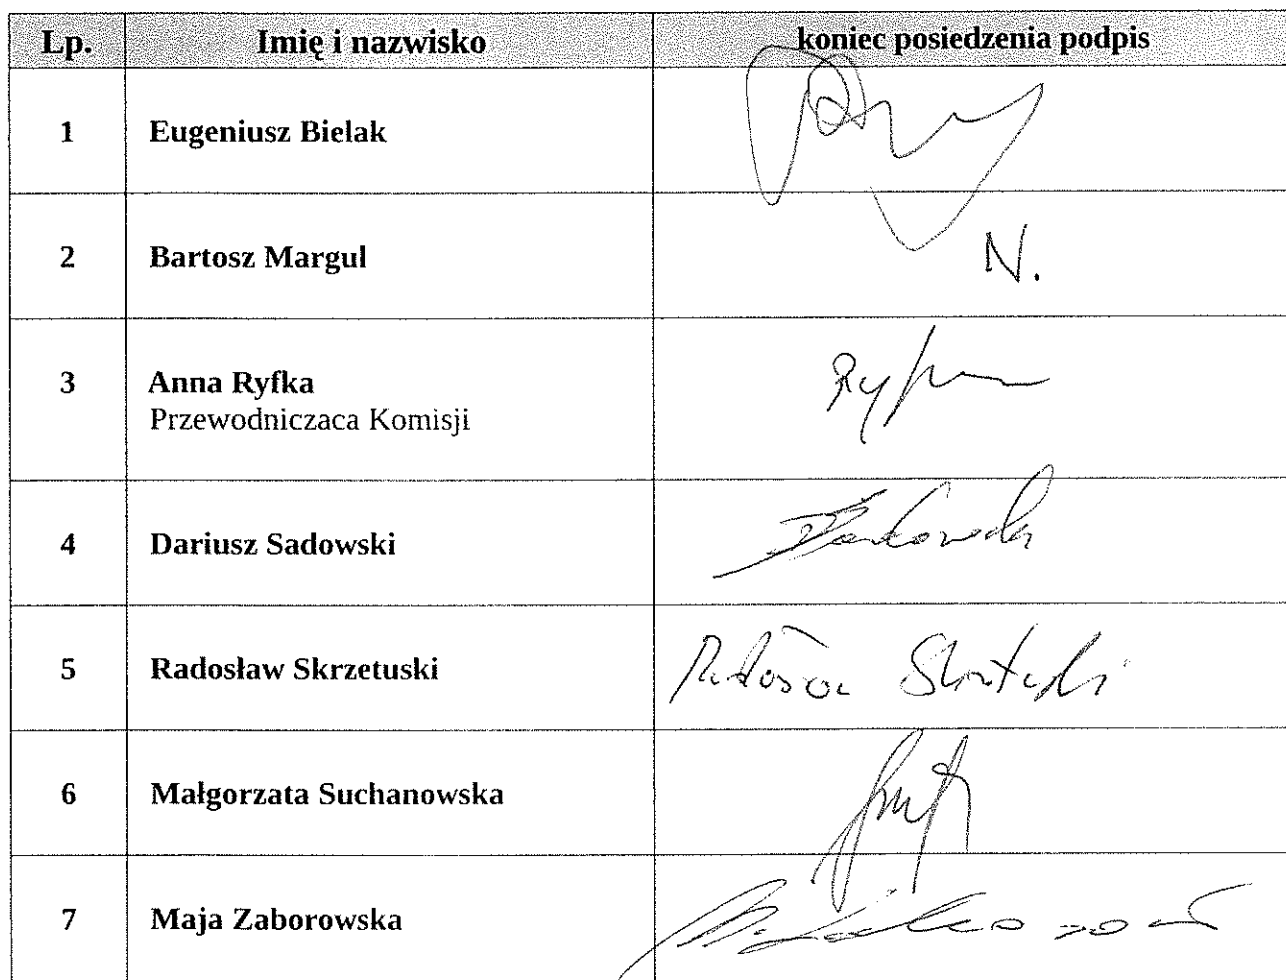 Lp. Imię i nazwisko koniec posiedzenia podpis
1 Eugeniusz Bielak
2 Bartosz Margul N.
3 Anna Ryfka
Przewodnicząca Komisji
4 Dariusz Sadowski
5 Radosław Skrzetuski
6 Małgorzata Suchanowska
7 Maja Zaborowska